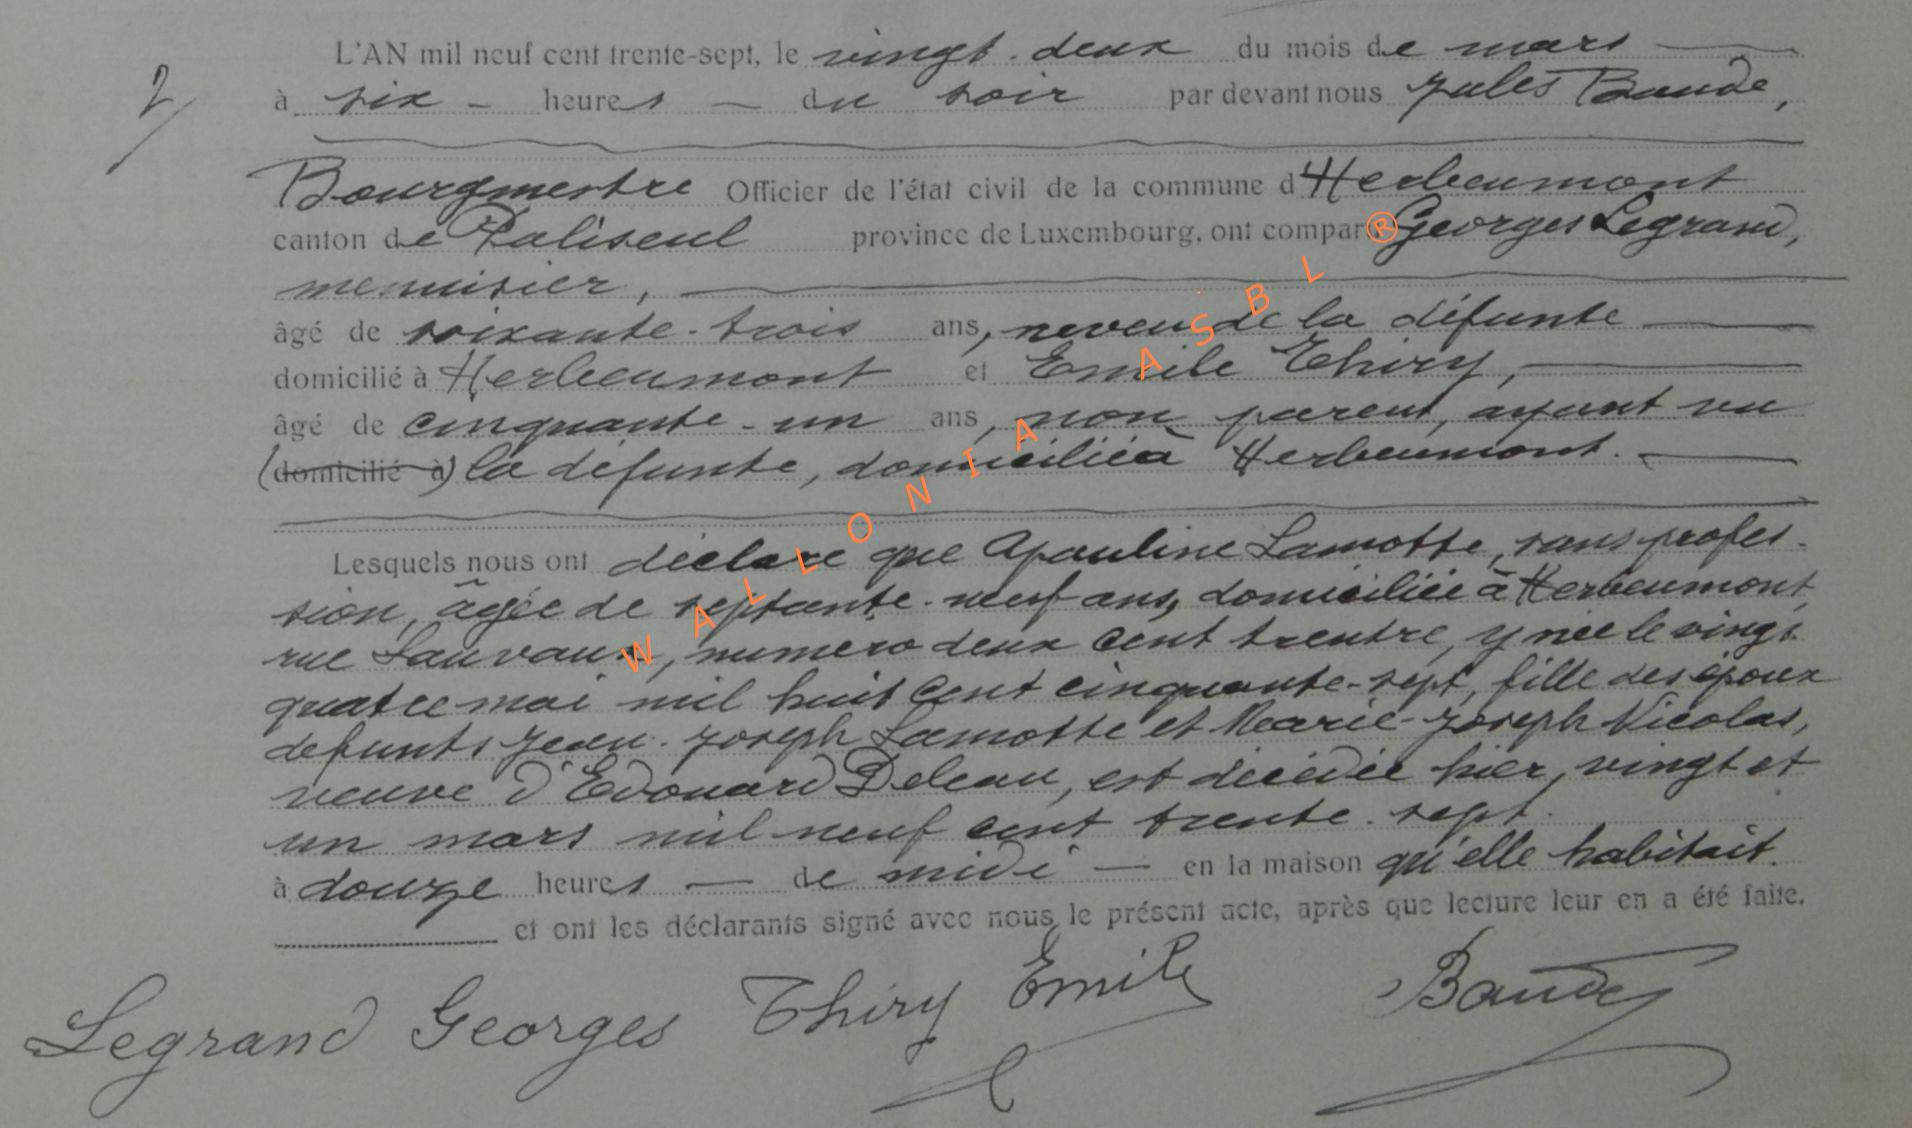 L'AN mil neuf cent trente-sept, le vingt-deux du mois de mars
2/
à six heures du soir par devant nous Jules Baude,
Bourgmestre Officier de l'état civil de la commune d'Herbeumont
canton de Paliseul province de Luxembourg, ont compar® Georges Legrand,
menuisier,
âgé de soixante-trois ans, neveu de la défunte
domicilié à Herbeumont et Emile Thiry,
âgé de cinquante-un ans, non parent, ayant vu
(domicilié à) la défunte, domicilié à Herbeumont.
Lesquels nous ont déclaré que Apauline Lamotte, sans profes-
sion, âgée de septante-neuf ans, domiciliée à Herbeumont,
rue Lauvaux, numéro deux cent trentre, y née le vingt
quatre mai mil huit cent cinquante-sept, fille des époux
défunts Jean-Joseph Lamotte et Marie-Joseph Nicolas,
veuve d'Edouard Deleau, est décédée hier, vingt et
un mars mil neuf cent trente-sept.
à douze heures de midi en la maison qu'elle habitait.
et ont les déclarants signé avec nous le présent acte, après que lecture leur en a été faite.
Legrand Georges Thiry Emile Baude
WALLONIA ASBL